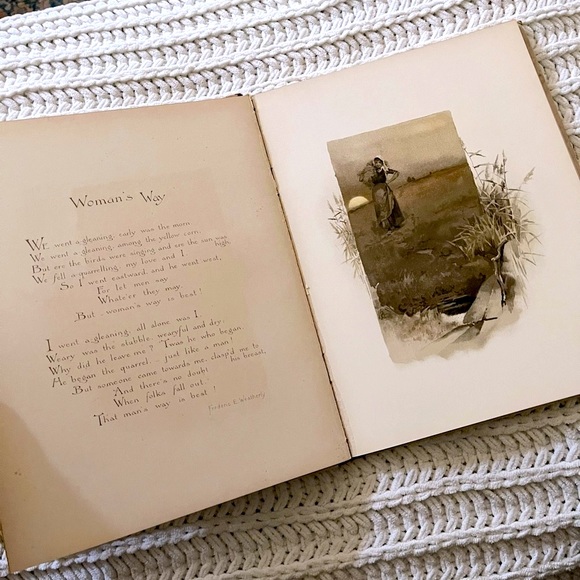 Woman's Way
WE went a-gleaning: early was the morn.
We went a-gleaning, among the yellow corn,
But ere the birds were singing and ere the sun was high
We fell a-quarrelling, my love and I.
So I went eastward, and he went west,
For let men say
Whate'er they may,
But - woman's way is best!
I went a-gleaning, all alone was I.
Weary was the stubble, wearyful and dry.
Why did he leave me? 'Twas he who began.
He began the quarrel, just like a man!
But someone came towards me, clasp'd me to his breast,
And there's no doubt
When folks fall out,
That man's way is best!
Frederic E. Weatherly